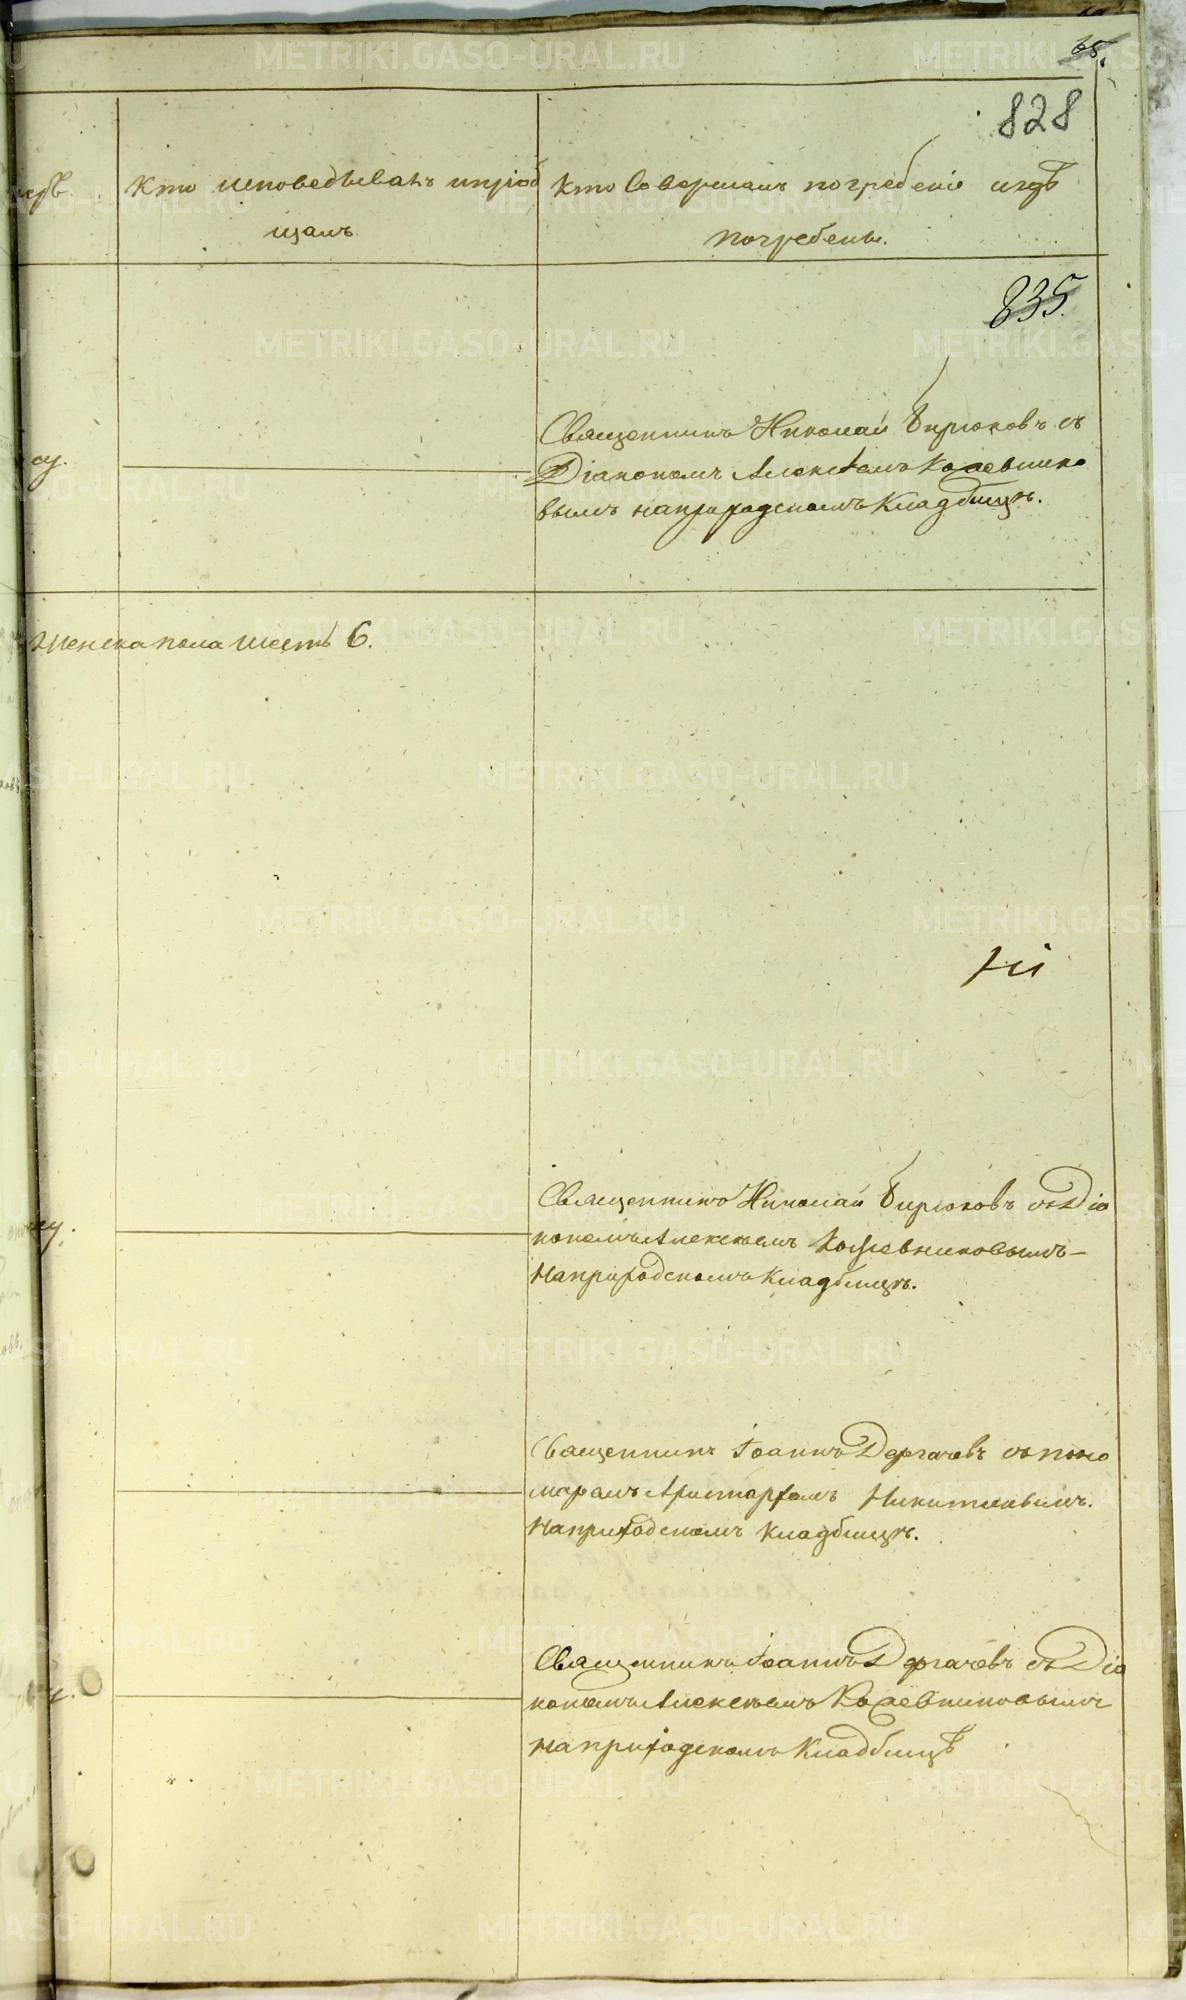 828
Кто исповедывалъ ипріоб
щалъ
Кто Совершалъ погребеніе игдѣ
погребены.
835.
Священникъ Николай Бирюковъ съ
Діакономъ Алексѣемъ Кожевнико
вымъ наприходскомъ Кладбищѣ.
Женска пола шесть 6.
Священникъ Николай Бирюковъ съ Діа
кономъ Алексѣемъ Кожевниковымъ
Наприходскомъ Кладбищѣ.
Священникъ Іоаннъ Дергачевъ съ поно
маремъ Аристархомъ Никитинымъ.
Наприходскомъ кладбищѣ.
Священникъ Іоаннъ Дергачевъ съ Діа
кономъ Алексѣемъ Кожевниковымъ
Наприходскомъ Кладбищѣ
METRIKI.GASO-URAL.RU